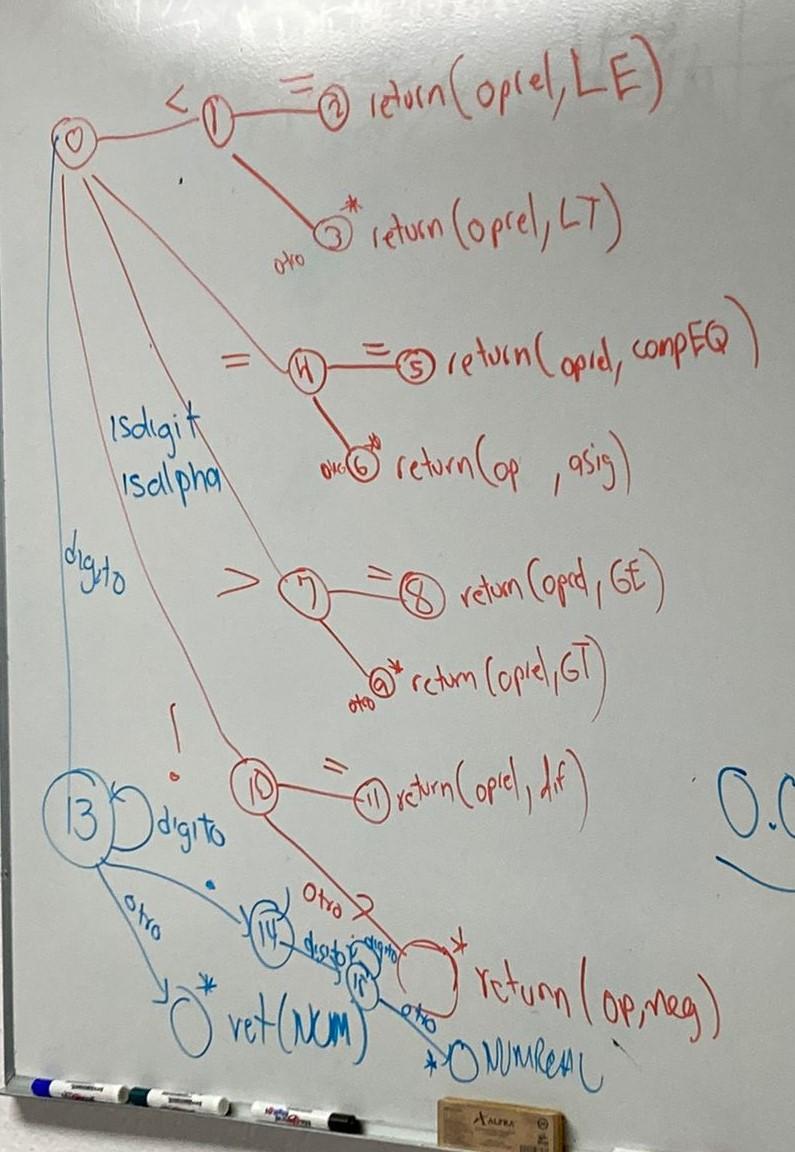 < = ② return(oprel, LE)
⓪ ①
* ③ return(oprel, LT)
otro
= ④ = ⑤ return(oprel, compEQ)
otro ⑥ * return(op , asig)
isdigit
isalpha
digito
> ⑦ = ⑧ return(oprel, GE)
otro ⑨ * return(oprel, GT)
!
⑩ = ⑪ return(oprel, dif)
13 digito
0.0
otro
. 14 digito digito
otro * return(op, neg)
* ret(NUM)
15 otro
* NUMREAL
ALFRA